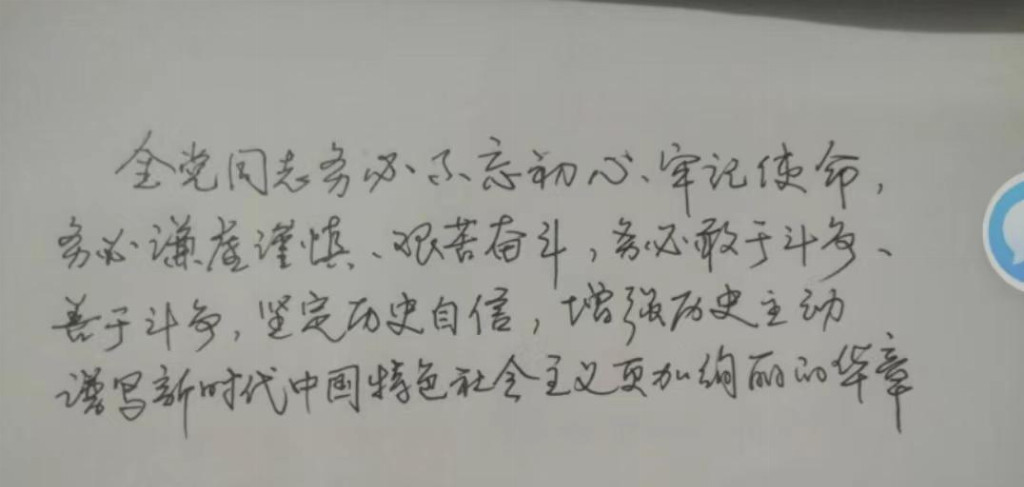 全党同志务必不忘初心、牢记使命,
务必谦虚谨慎、艰苦奋斗,务必敢于斗争、
善于斗争,坚定历史自信,增强历史主动
谱写新时代中国特色社会主义更加绚丽的华章